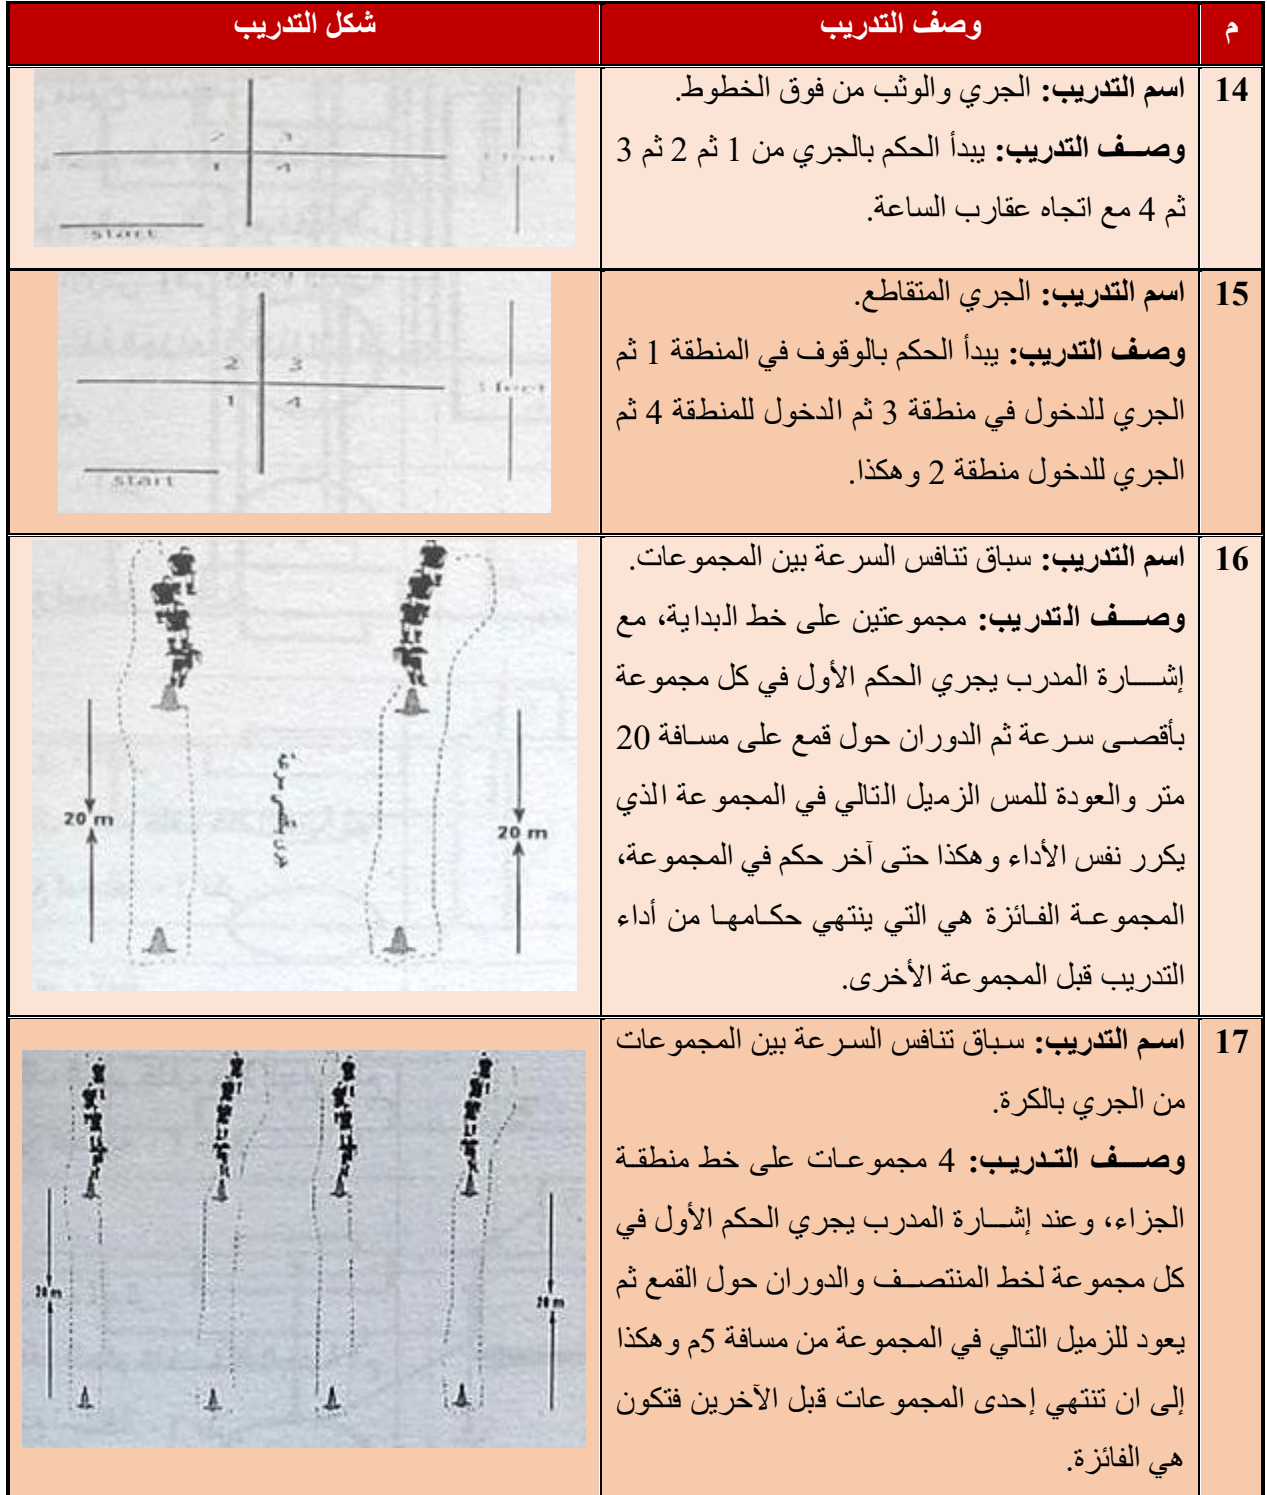 م وصف التدريب شكل التدريب
14 اسم التدريب: الجري والوثب من فوق الخطوط.
وصف التدريب: يبدأ الحكم بالجري من 1 ثم 2 ثم 3
ثم 4 مع اتجاه عقارب الساعة.
2 3
1 4
start
15 اسم التدريب: الجري المتقاطع.
وصف التدريب: يبدأ الحكم بالوقوف في المنطقة 1 ثم
الجري للدخول في منطقة 3 ثم الدخول للمنطقة 4 ثم
الجري للدخول منطقة 2 وهكذا.
2 3
1 4
feet
start
16 اسم التدريب: سباق تنافس السرعة بين المجموعات.
وصف التدريب: مجموعتين على خط البداية، مع
إشارة المدرب يجري الحكم الأول في كل مجموعة
بأقصى سرعة ثم الدوران حول قمع على مسافة 20
متر والعودة للمس الزميل التالي في المجموعة الذي
يكرر نفس الأداء وهكذا حتى آخر حكم في المجموعة،
المجموعة الفائزة هي التي ينتهي حكامها من أداء
التدريب قبل المجموعة الأخرى.
20 m
20 m
17 اسم التدريب: سباق تنافس السرعة بين المجموعات
من الجري بالكرة.
وصف التدريب: 4 مجموعات على خط منطقة
الجزاء، وعند إشارة المدرب يجري الحكم الأول في
كل مجموعة لخط المنتصف والدوران حول القمع ثم
يعود للزميل التالي في المجموعة من مسافة 5م وهكذا
إلى ان تنتهي إحدى المجموعات قبل الآخرين فتكون
هي الفائزة.
20 m
20 m